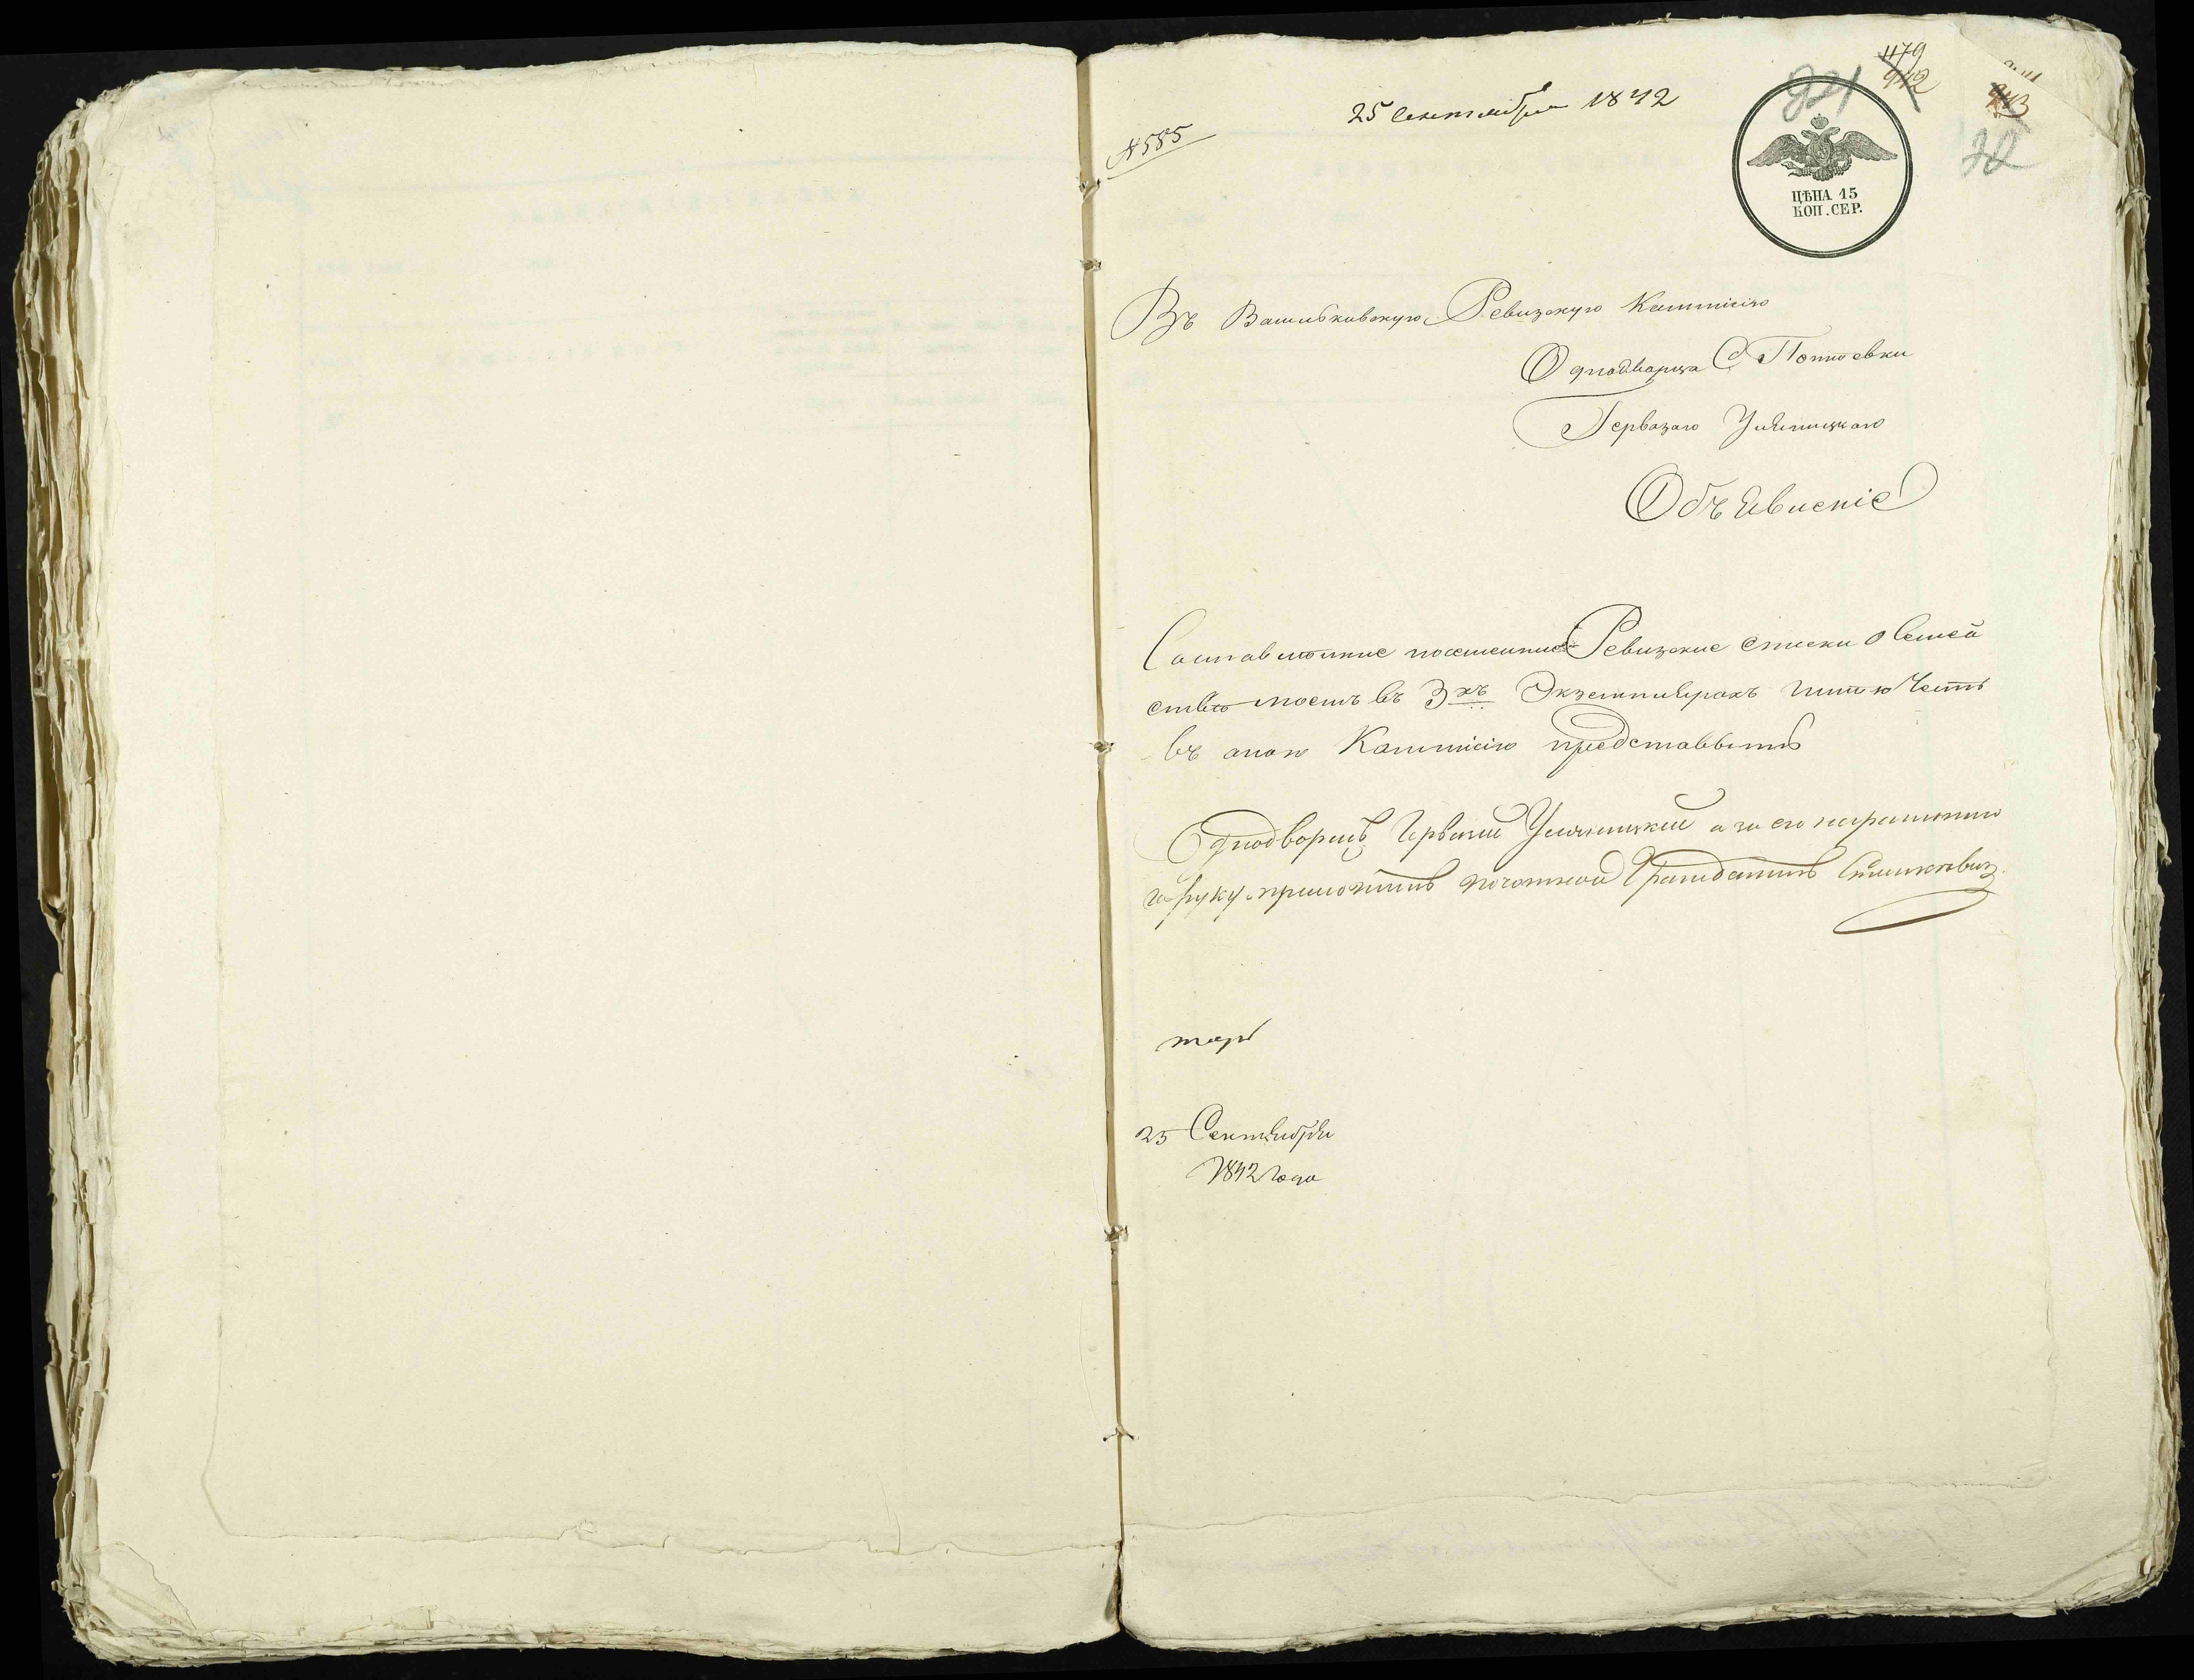 25 Сентября 1842
№585
ЦѢНА 15
КОП. СЕР.
22
Въ Васильковскую Ревизскую Коммисію
Однодворца С Попоевки
Гервазаго
Объявленіе
Составленные посемейные Ревизские списки о Семей
стве моемъ въ 3хъ Экземплярахъ имею Честь
въ оною Коммисію представить
Однодворецъ Гервазий а за его неграмотного
руку приложилъ почотной Гражданинъ
25 Сентября
1842 года